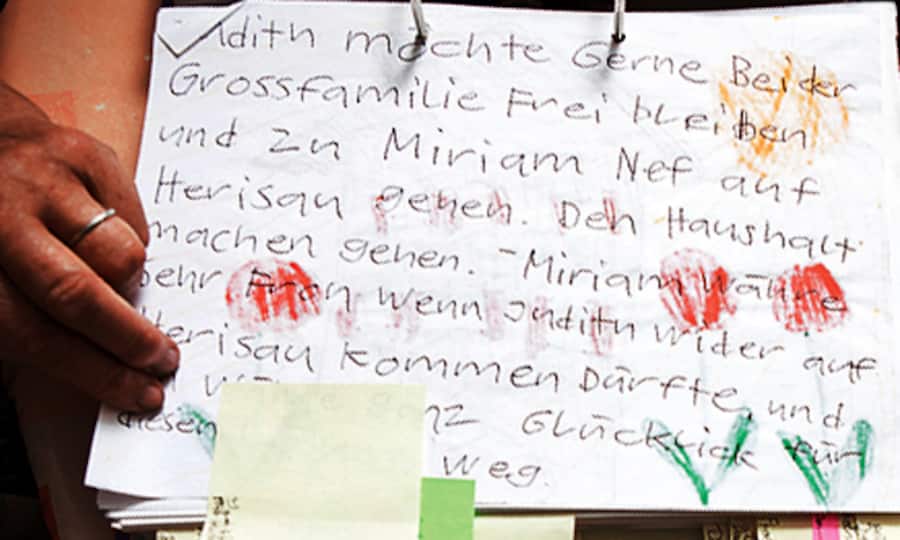 Judith möchte Gerne Bei der
Grossfamilie Frei bleiben
und Zu Miriam Nef auf
Herisau gehen. Den Haushalt
machen gehen. - Miriam wäure
Sehr Fron wenn Judith wider auf
Herisau kommen Dürfte, und
ganz Glücklick für
diesen weg.